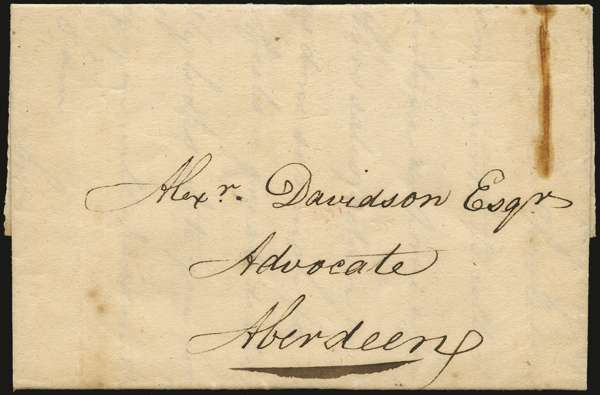 Alexr. Davidson Esqr
Advocate
Aberdeen